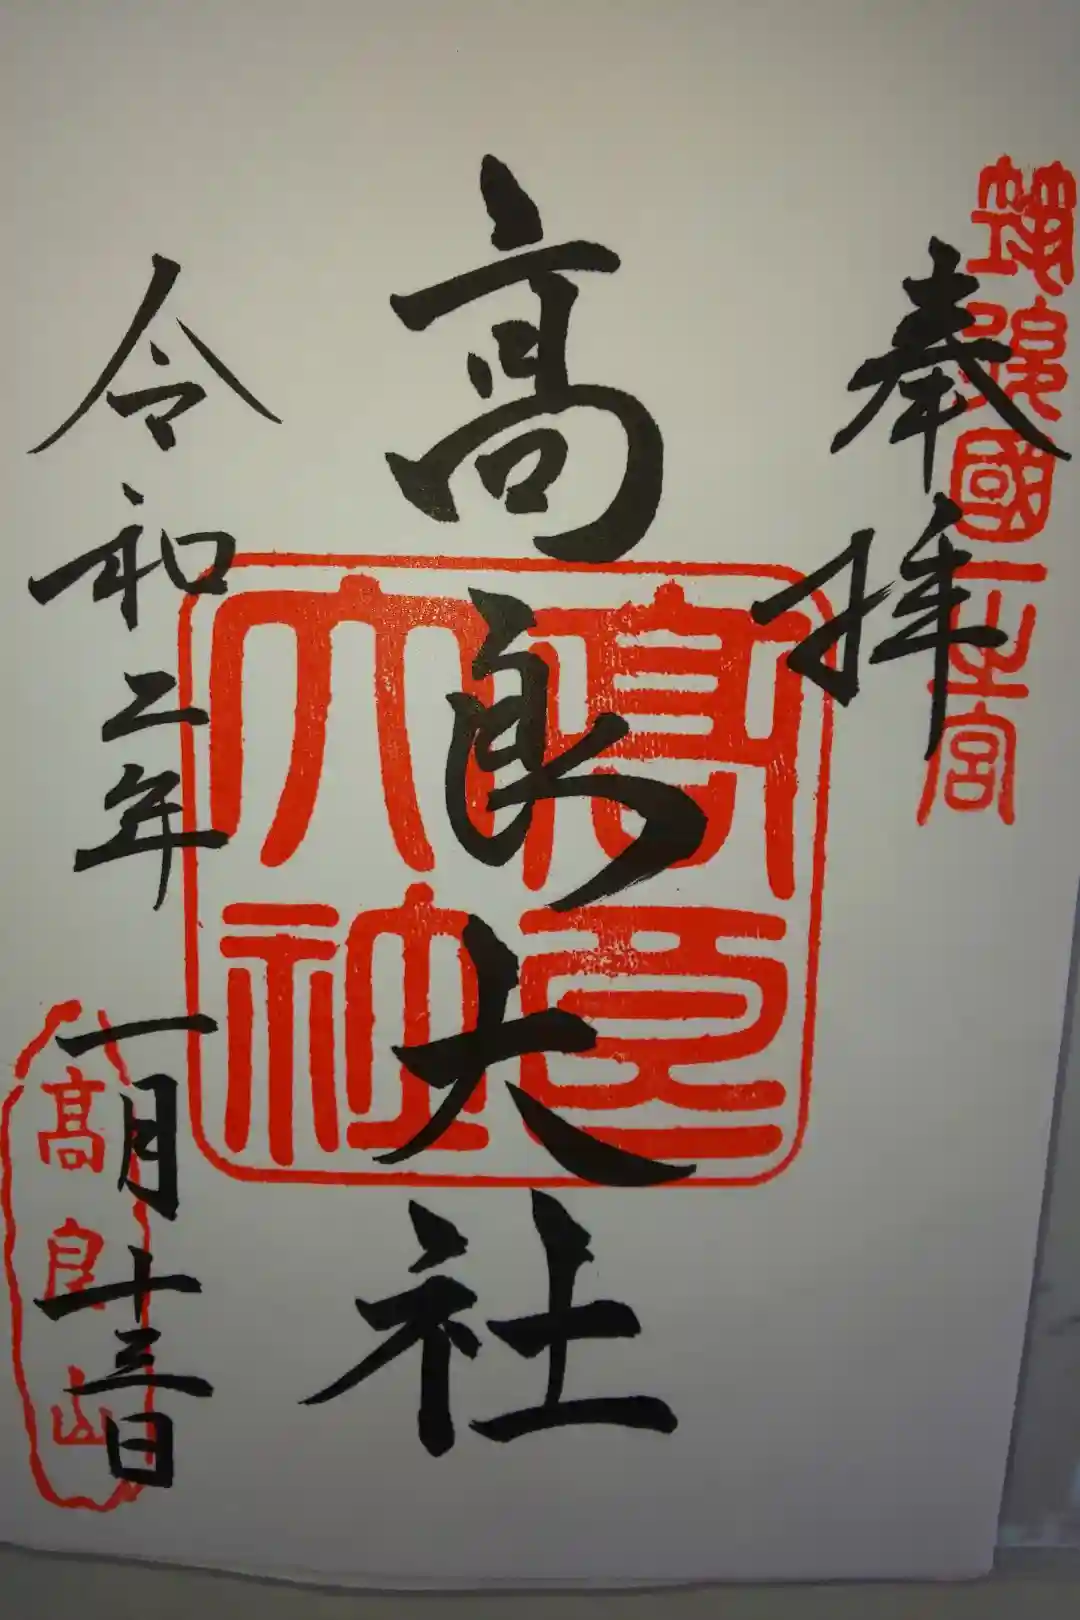 筑後國一之宮
奉拝
高良大社
高良大社
令和二年一月十三日
高良山